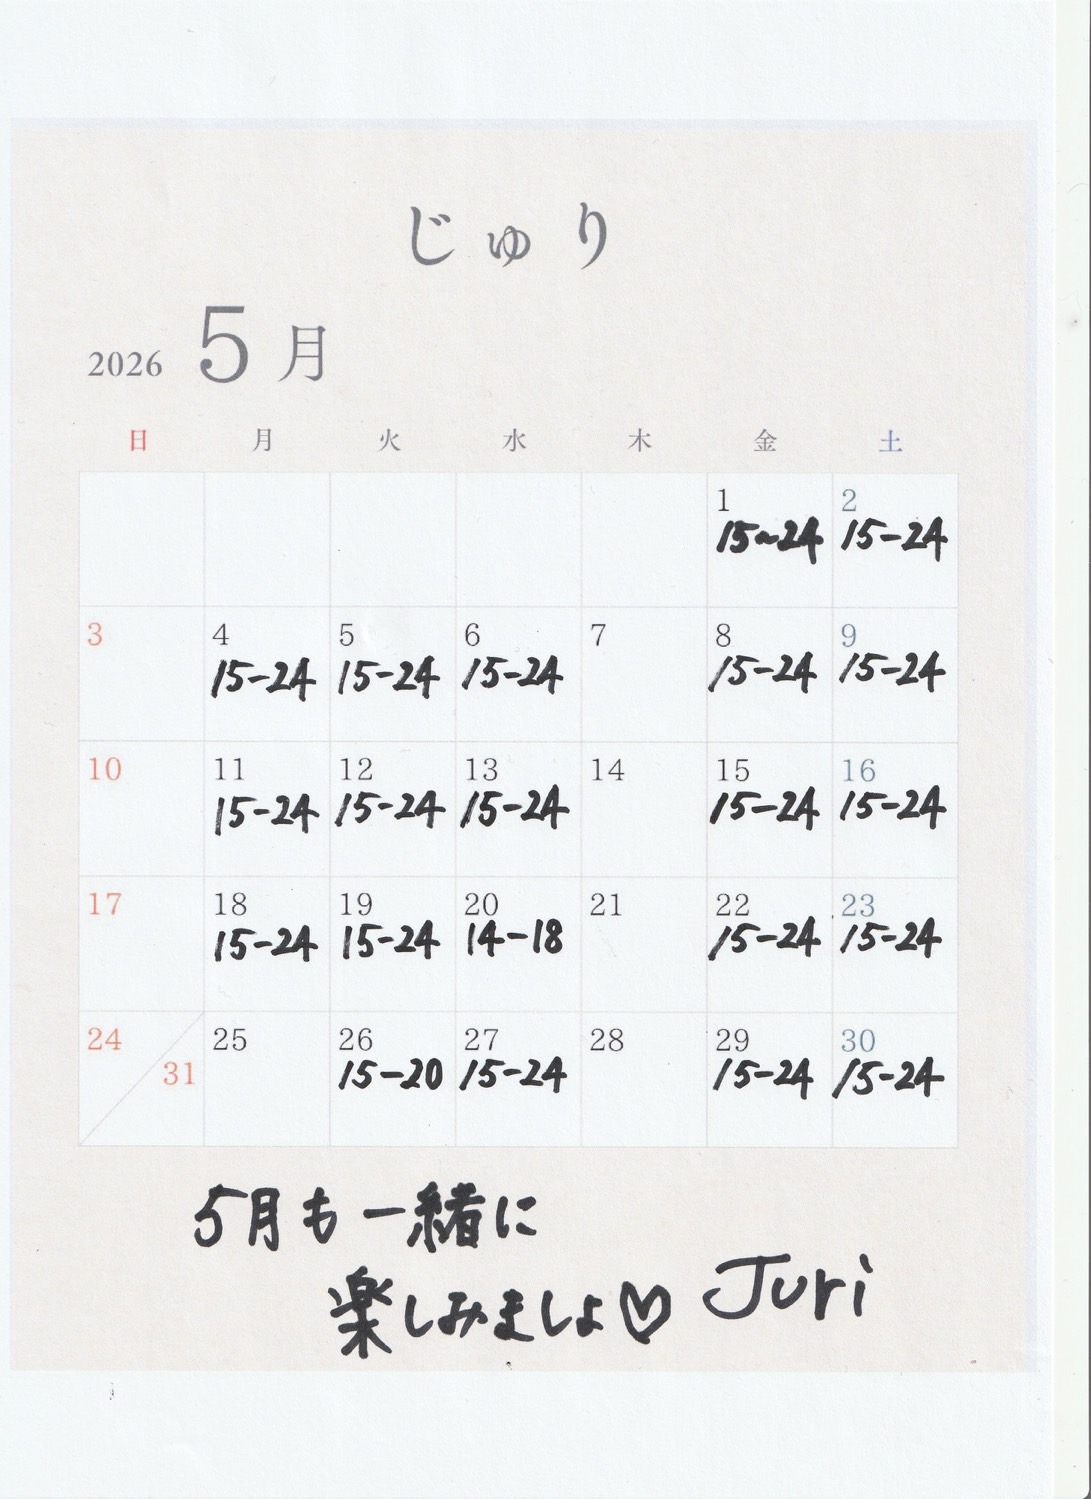 じゅり
2026 5月
日 月 火 水 木 金 土
1 2
15~24 15-24
3 4 5 6 7 8 9
15-24 15-24 15-24 15-24 15-24
10 11 12 13 14 15 16
15-24 15-24 15-24 15-24 15-24
17 18 19 20 21 22 23
15-24 15-24 14-18 15-24 15-24
24 31 25 26 27 28 29 30
15-20 15-24 15-24 15-24
5月も一緒に
楽しみましょ♡ Juri